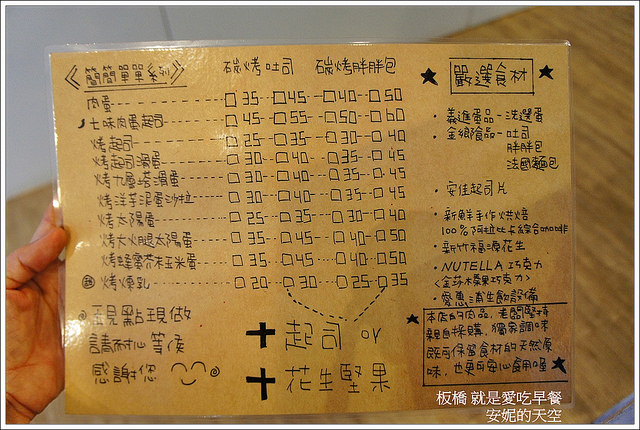 《簡簡單單系列》 碳烤吐司 碳烤胖胖包
肉蛋 35 45 40 50
七味肉蛋起司 45 55 50 60
烤起司 25 35 30 40
烤起司滑蛋 30 40 35 45
烤九層塔滑蛋 30 40 35 45
烤洋芋泥蛋沙拉 35 45 35 45
烤太陽蛋 25 35 30 40
烤火腿太陽蛋 35 45 40 50
烤蜂蜜芥末玉米蛋 35 45 40 50
烤煉乳 20 30 25 35
+ 起司 or
+ 花生堅果
現點現做
請耐心等侯
感謝您
★ 嚴選食材 ★
・義進蛋品-洗選蛋
・金鄉食品-吐司
胖胖包
法國麵包
・安佳起司片
・新鮮手作烘焙
100%阿拉比卡綜合咖啡
・新竹福源花生
・NUTELLA 巧克力
〈金莎榛果巧克力〉
・愛惠浦生飲設備
本店的肉品,老闆堅持
親自採購,獨家調味
既可保留食材的天然原
味,也更可安心食用喔
板橋 就是愛吃早餐
安妮的天空